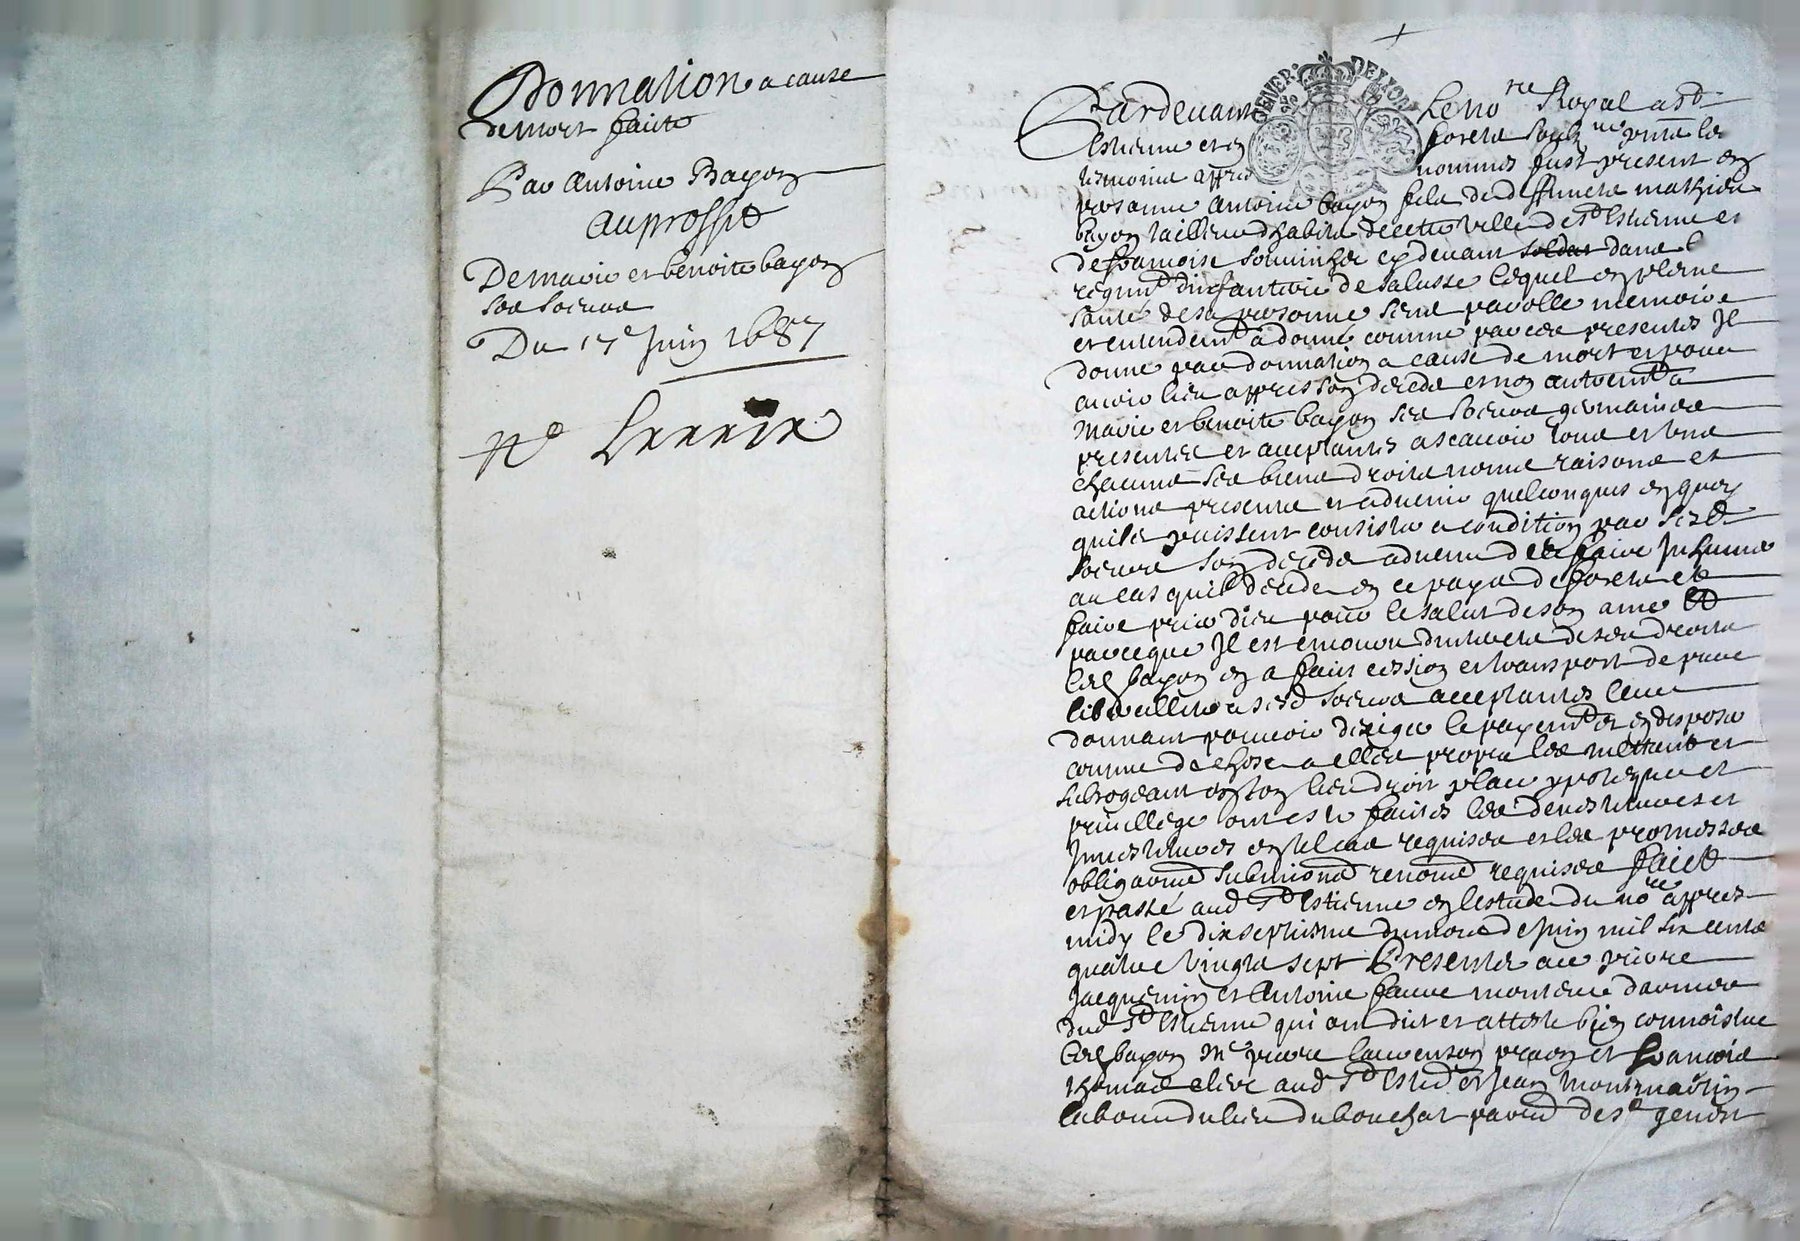 Donnation a cause
de mort faite
Par Antoine Bayon
Au proffit
De marie et benoite bayon
ses soeurs
Du 17e Juin 1687
GENER. DE LYON
Pardevant Le nore Royal a st
Estienne en forestz soubzne presentz les
tesmoins appres nommes fust present en
personne Antoine bayon filz de deffunctz mathieu
bayon tailleur dhabitz de cette ville de st Estienne et
de francoise cy devant soldat dans le
regimt dinfanterie de salusse lequel en pleine
santé de sa personne sens parolle memoire
et entendemt a donné comme par ces presentes Il
donne par donnation a cause de mort et pour
avoir lieu appres son deceds et non autremt a
Marie et benoite bayon ses soeurs germaines
presentes et acceptantes ascavoir tous et uns
chacuns ses biens droitz noms raisons et
actions presents et advenir quelconques en quoy
quils puissent consister a condition par sesd
soeurs son deceds advenu de le faire Inhumer
au cas quil decede en ce pays de forestz et
faire prier dieu pour le salut de son ame Et
parceque Il est
led bayon en a fait cession et transport de pure
a sesd soeurs acceptantes leur
donnant pouvoir dexiger le payemt et en disposer
comme de chose a elles propre les mettant et
subrogeant en son lieu droit place ypoteque et
privillege ont este faites les devestitures et
Investitures en tel cas requises et les promesses
obligaons submions renons requises faict
et passé aud st Estienne en lestude du nore appres
midy le dixseptiesme du mois de Juin mil six centz
quatre vingtz sept Presentz sr pierre
Jacquemin et Antoine faure monteur darmes
dud st Estienne qui ont dict et atteste bien connoistre
led bayon Me pierre laurenson praon et francois
thomas clerc aud st Estne et Jean Montmartin
laboureur du lieu du bouchat parroisse de st genest